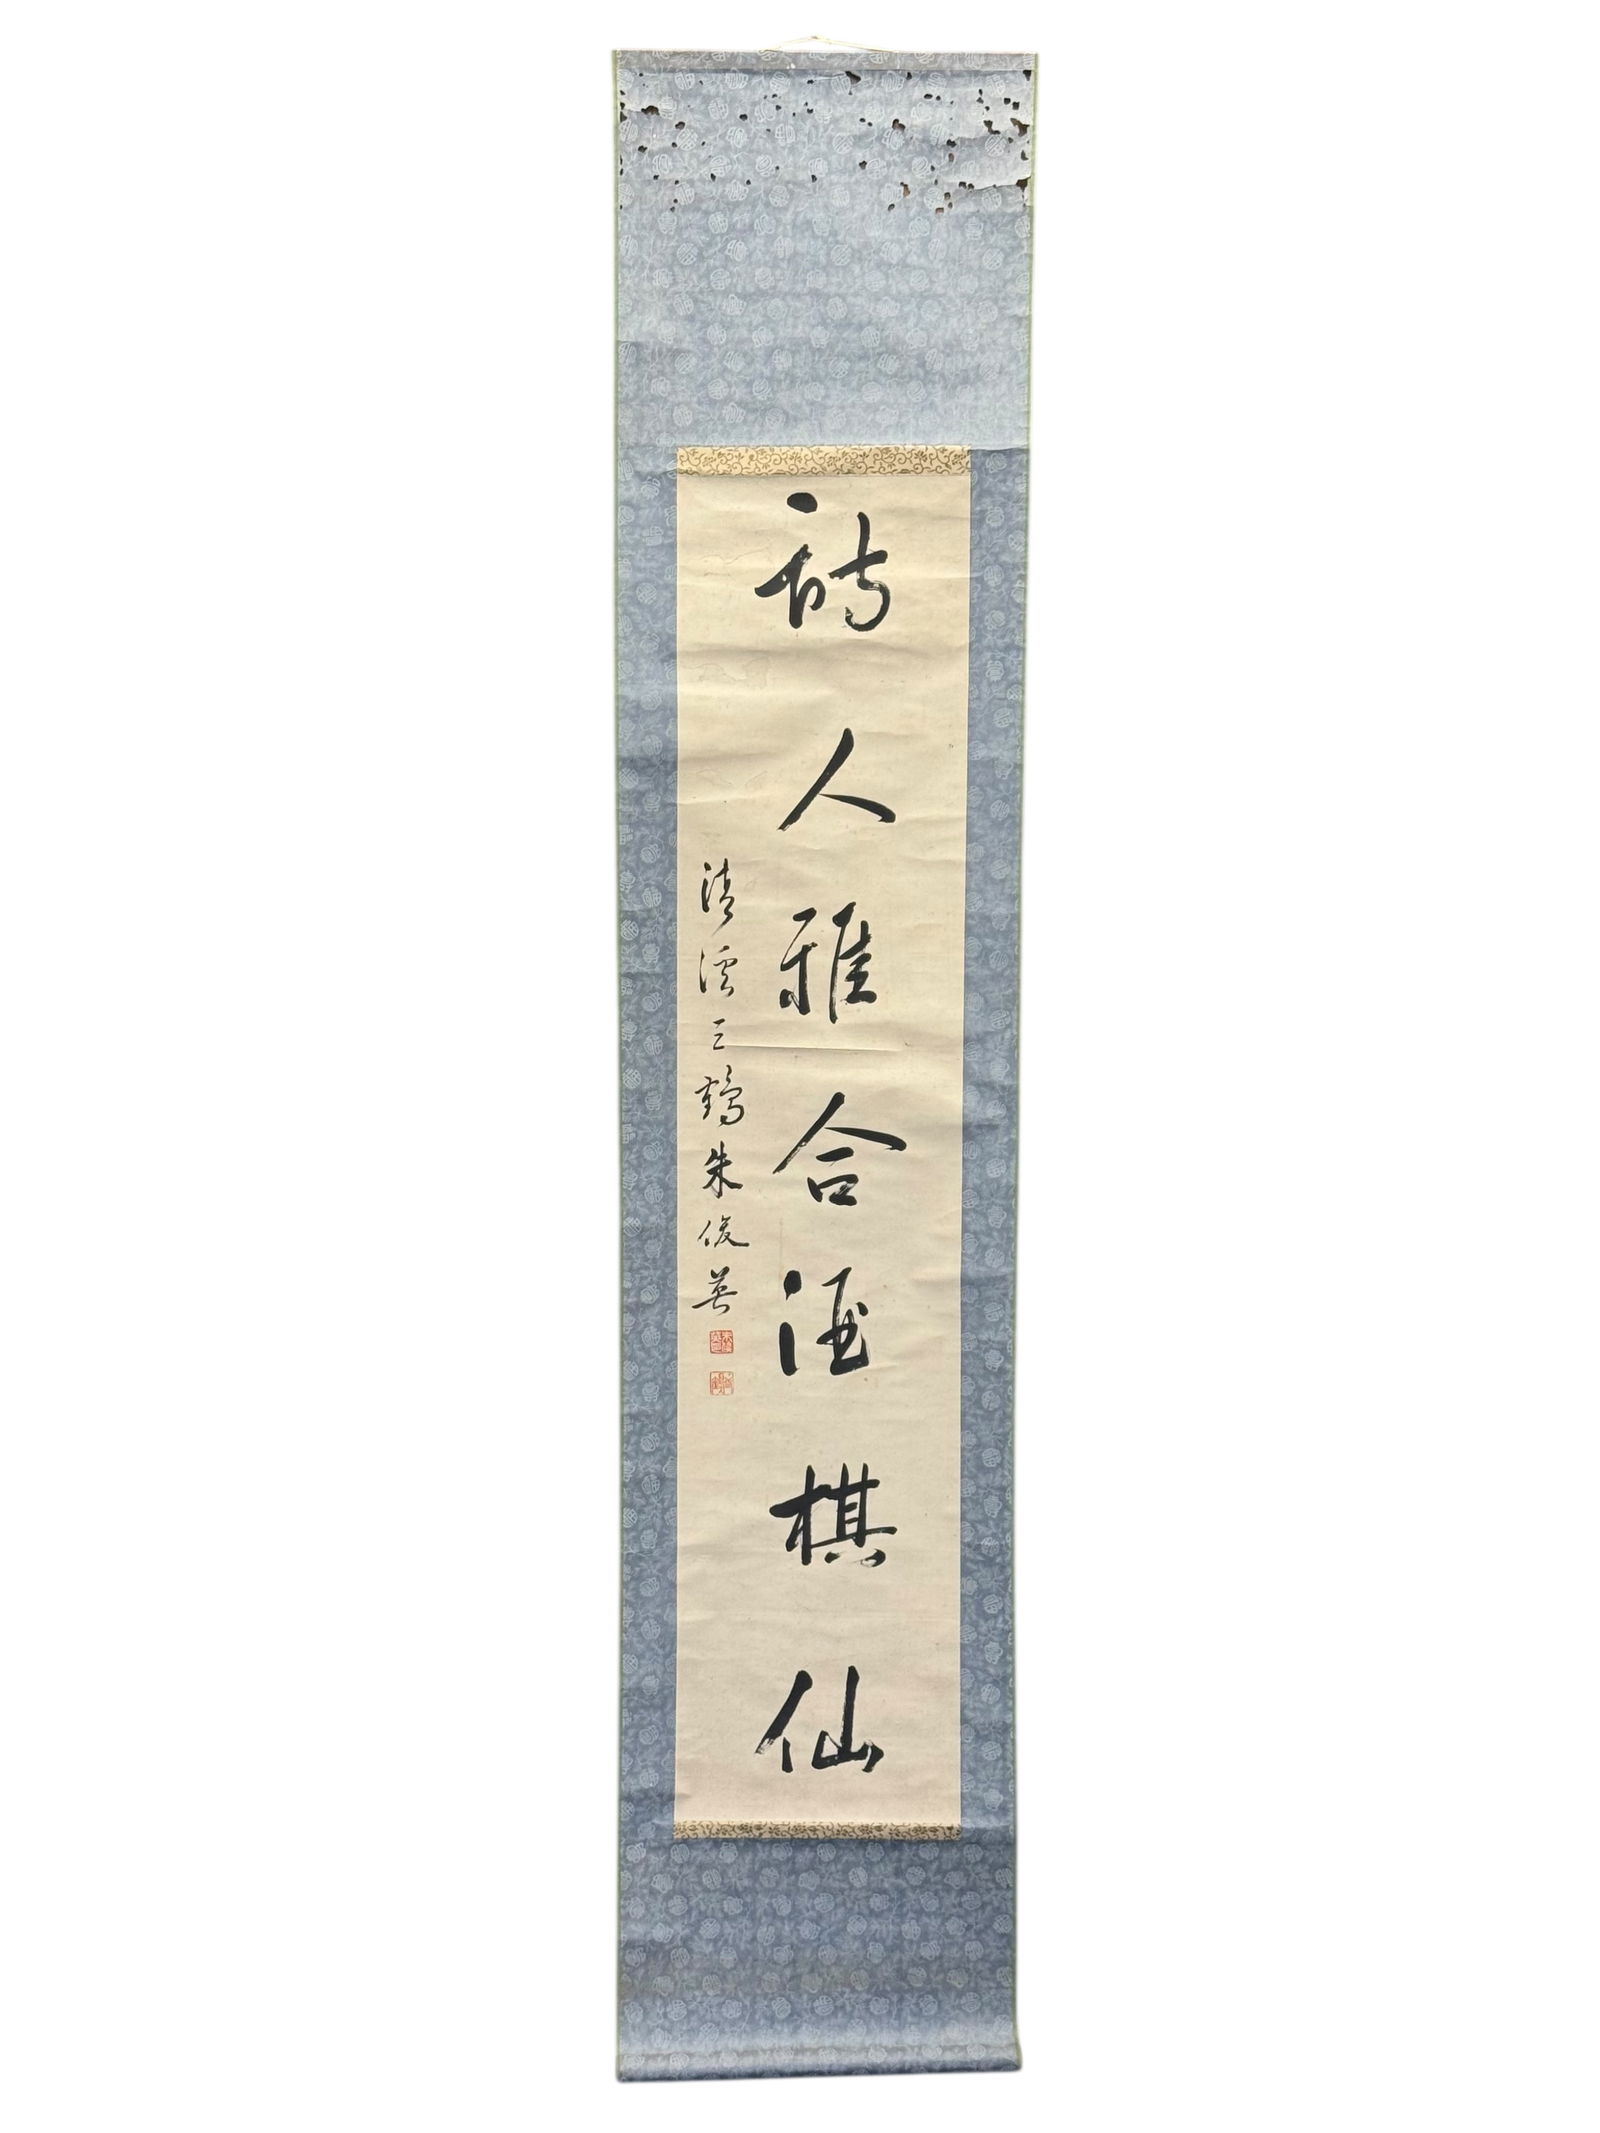 詩人雅合酒棋仙
清溪三鶴朱俊英